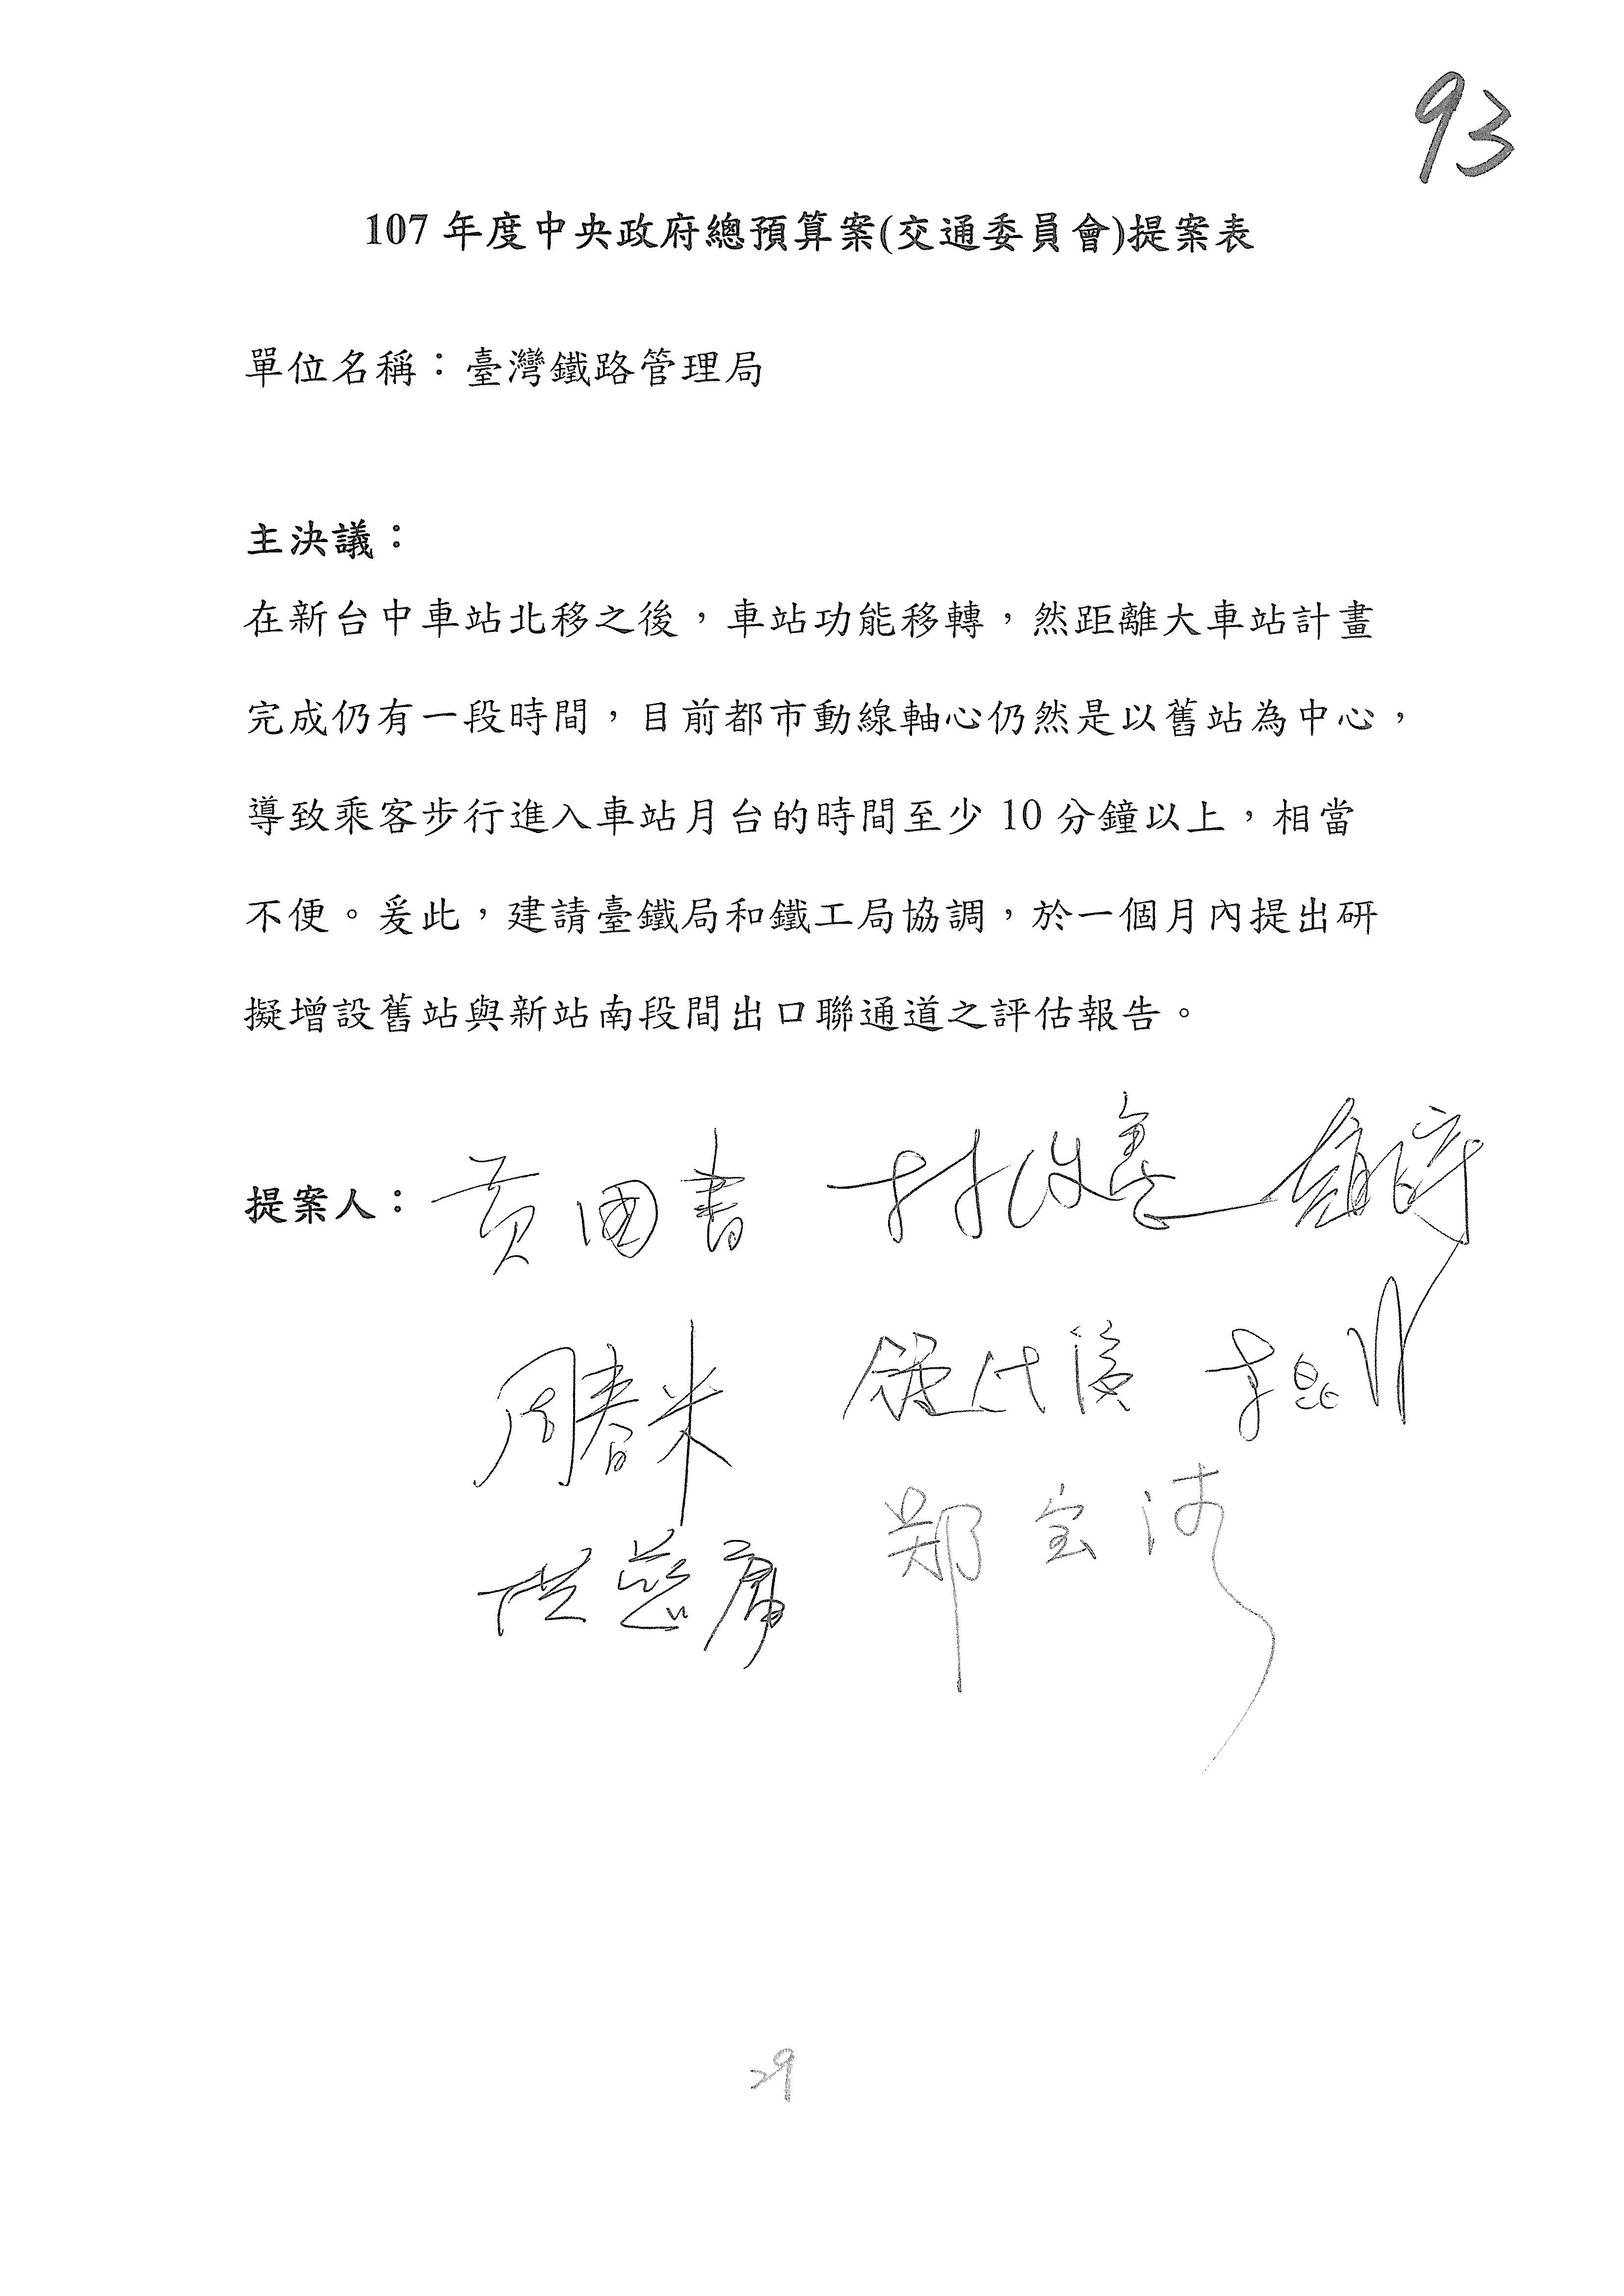 93
107 年度中央政府總預算案(交通委員會)提案表
單位名稱：臺灣鐵路管理局
主決議：
在新台中車站北移之後，車站功能移轉，然距離大車站計畫
完成仍有一段時間，目前都市動線軸心仍然是以舊站為中心，
導致乘客步行進入車站月台的時間至少 10 分鐘以上，相當
不便。爰此，建請臺鐵局和鐵工局協調，於一個月內提出研
擬增設舊站與新站南段間出口聯通道之評估報告。
提案人：黃國書 林俊憲
周春米 鍾佳濱 李昆澤
洪慈庸 鄭宝清
29